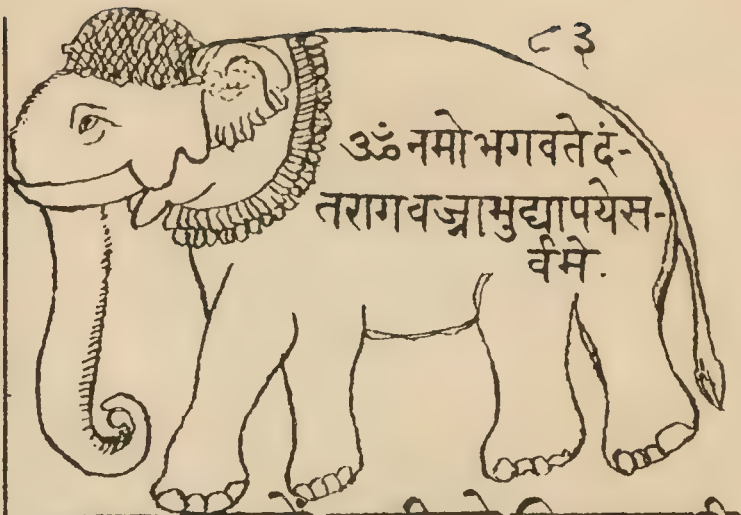 ८३
ॐ नमो भगवते दं-
तरागवज्रामुद्यापयेस-
र्वमे.